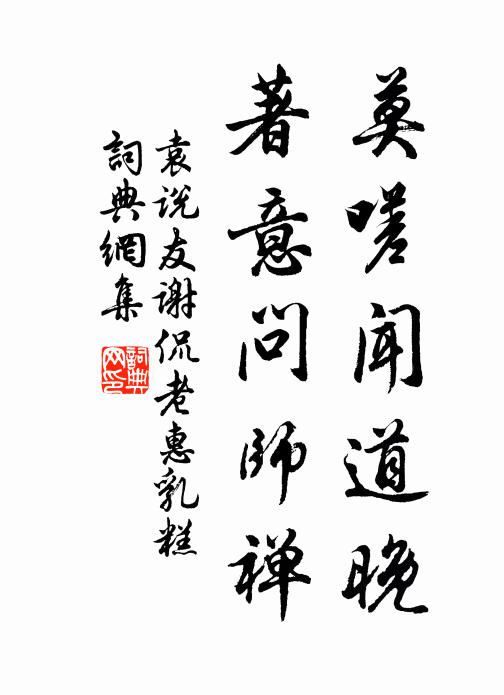 莫嗟闻道晚
著意问师禅
袁说友谢侃老惠乳糕
詞典網集
詞典网印